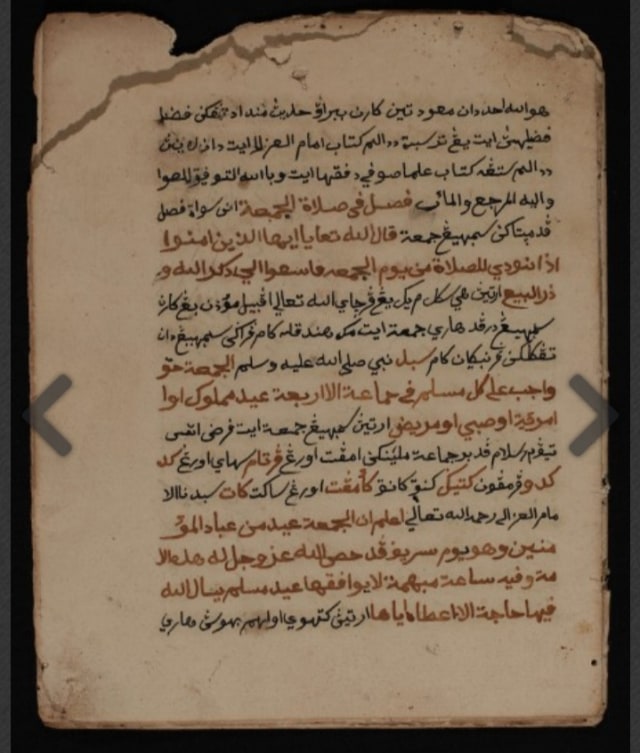 هوالله احد دان معوذتين كارن ببراڤ حديث منداتڠكن فضل
فضيلهڽ ايت يڠ ترسبة ددالم كتاب امام الغزالي ايت دان لاين
ددالم ستڠه كتاب علما صوفي دفقهاايت وبالله التوفيق للصوا
واليه المرجع والمآب فصل في صلاة الجمعة اين سواة فصل
ڤد مڽتاكن سمبهيڠ جمعة قال الله تعالى يا ايها الذين امنوا
اذا نودي للصلاة من يوم الجمعه فاسعوا الى ذكر الله و
ذر البيع ارتين هي سكل م يك يڠ ڤرچاي الله تعالى اڤبيل مؤذن يڠ كارن
سمبهيڠ در ڤد هاري جمعة ايت مك هندقله كام ڤركي سمبهيڠ دان
تڠݢلكن ڤرنيݢان كام سبد نبي صلى الله عليه وسلم الجمعة حق
واجب على كل مسلم في جماعة الا اربعة عبد مملوك اوا
امرئة او صبي او مريض ارتين سمبهيڠ جمعة ايت فرض اتس
تيڤ٢ اسلام ڤد برجماعة ملينكن امڤت اورڠ ڤرتام سهاي اورڠ كد
كدو ڤرمڤون كتيݢ كنق كانق كأمڤت اورڠ ساكت كات سيدنا الا
مام الغزالي رحمه الله تعالى اعلم ان الجمعة عيد من عباد المؤ
منين وهو يوم شريف قد خص الله عز وجل له هذه الا
مة وفيه ساعة مبهمة لا يوافقها عبد مسلم يسال الله
فيها حاجة الا اعطاه اياها ارتين كتهوي اولهم بهوسڽ هاري